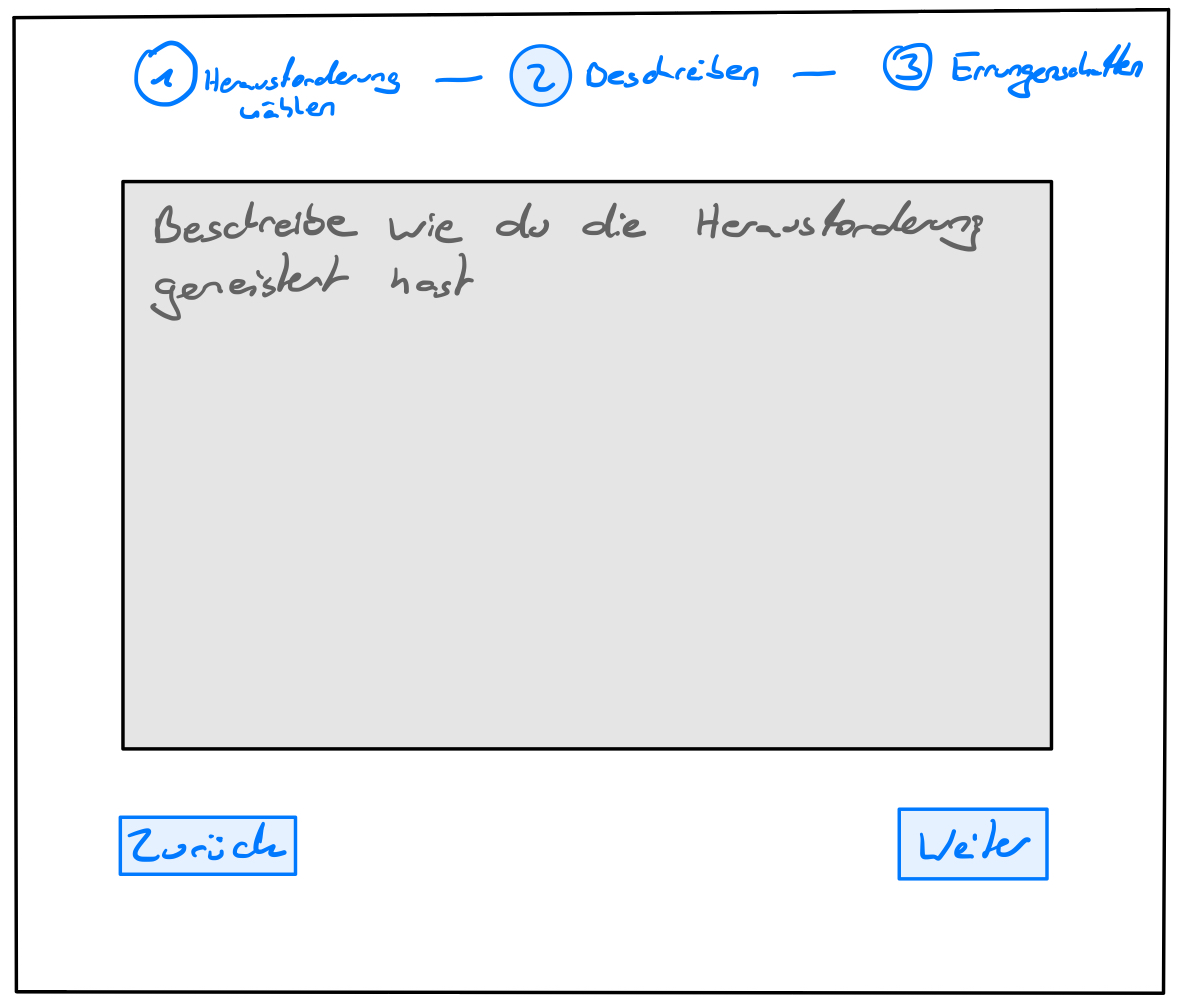 1 Herausforderung wählen — 2 Beschreiben — 3 Errungenschaften
Beschreibe wie du die Herausforderung
gemeistert hast
Zurück
Weiter